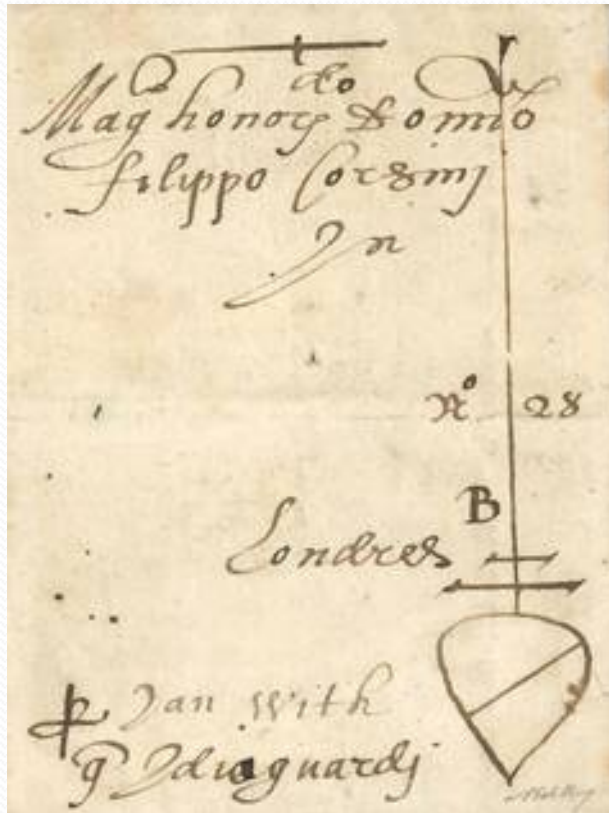 do
Mag honor Domio
filippo Corsinj
In
No 28
B
Londres
Jan With
q Idio guardj